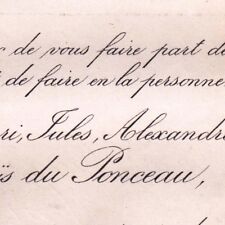 de vous faire part de
de faire en la personne
Jules, Alexandre
du Ponceau,